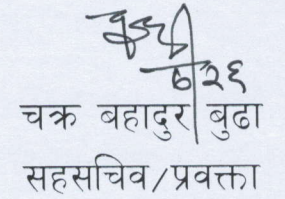 चक्र बहादुर बुढा
सहसचिव/प्रवक्ता